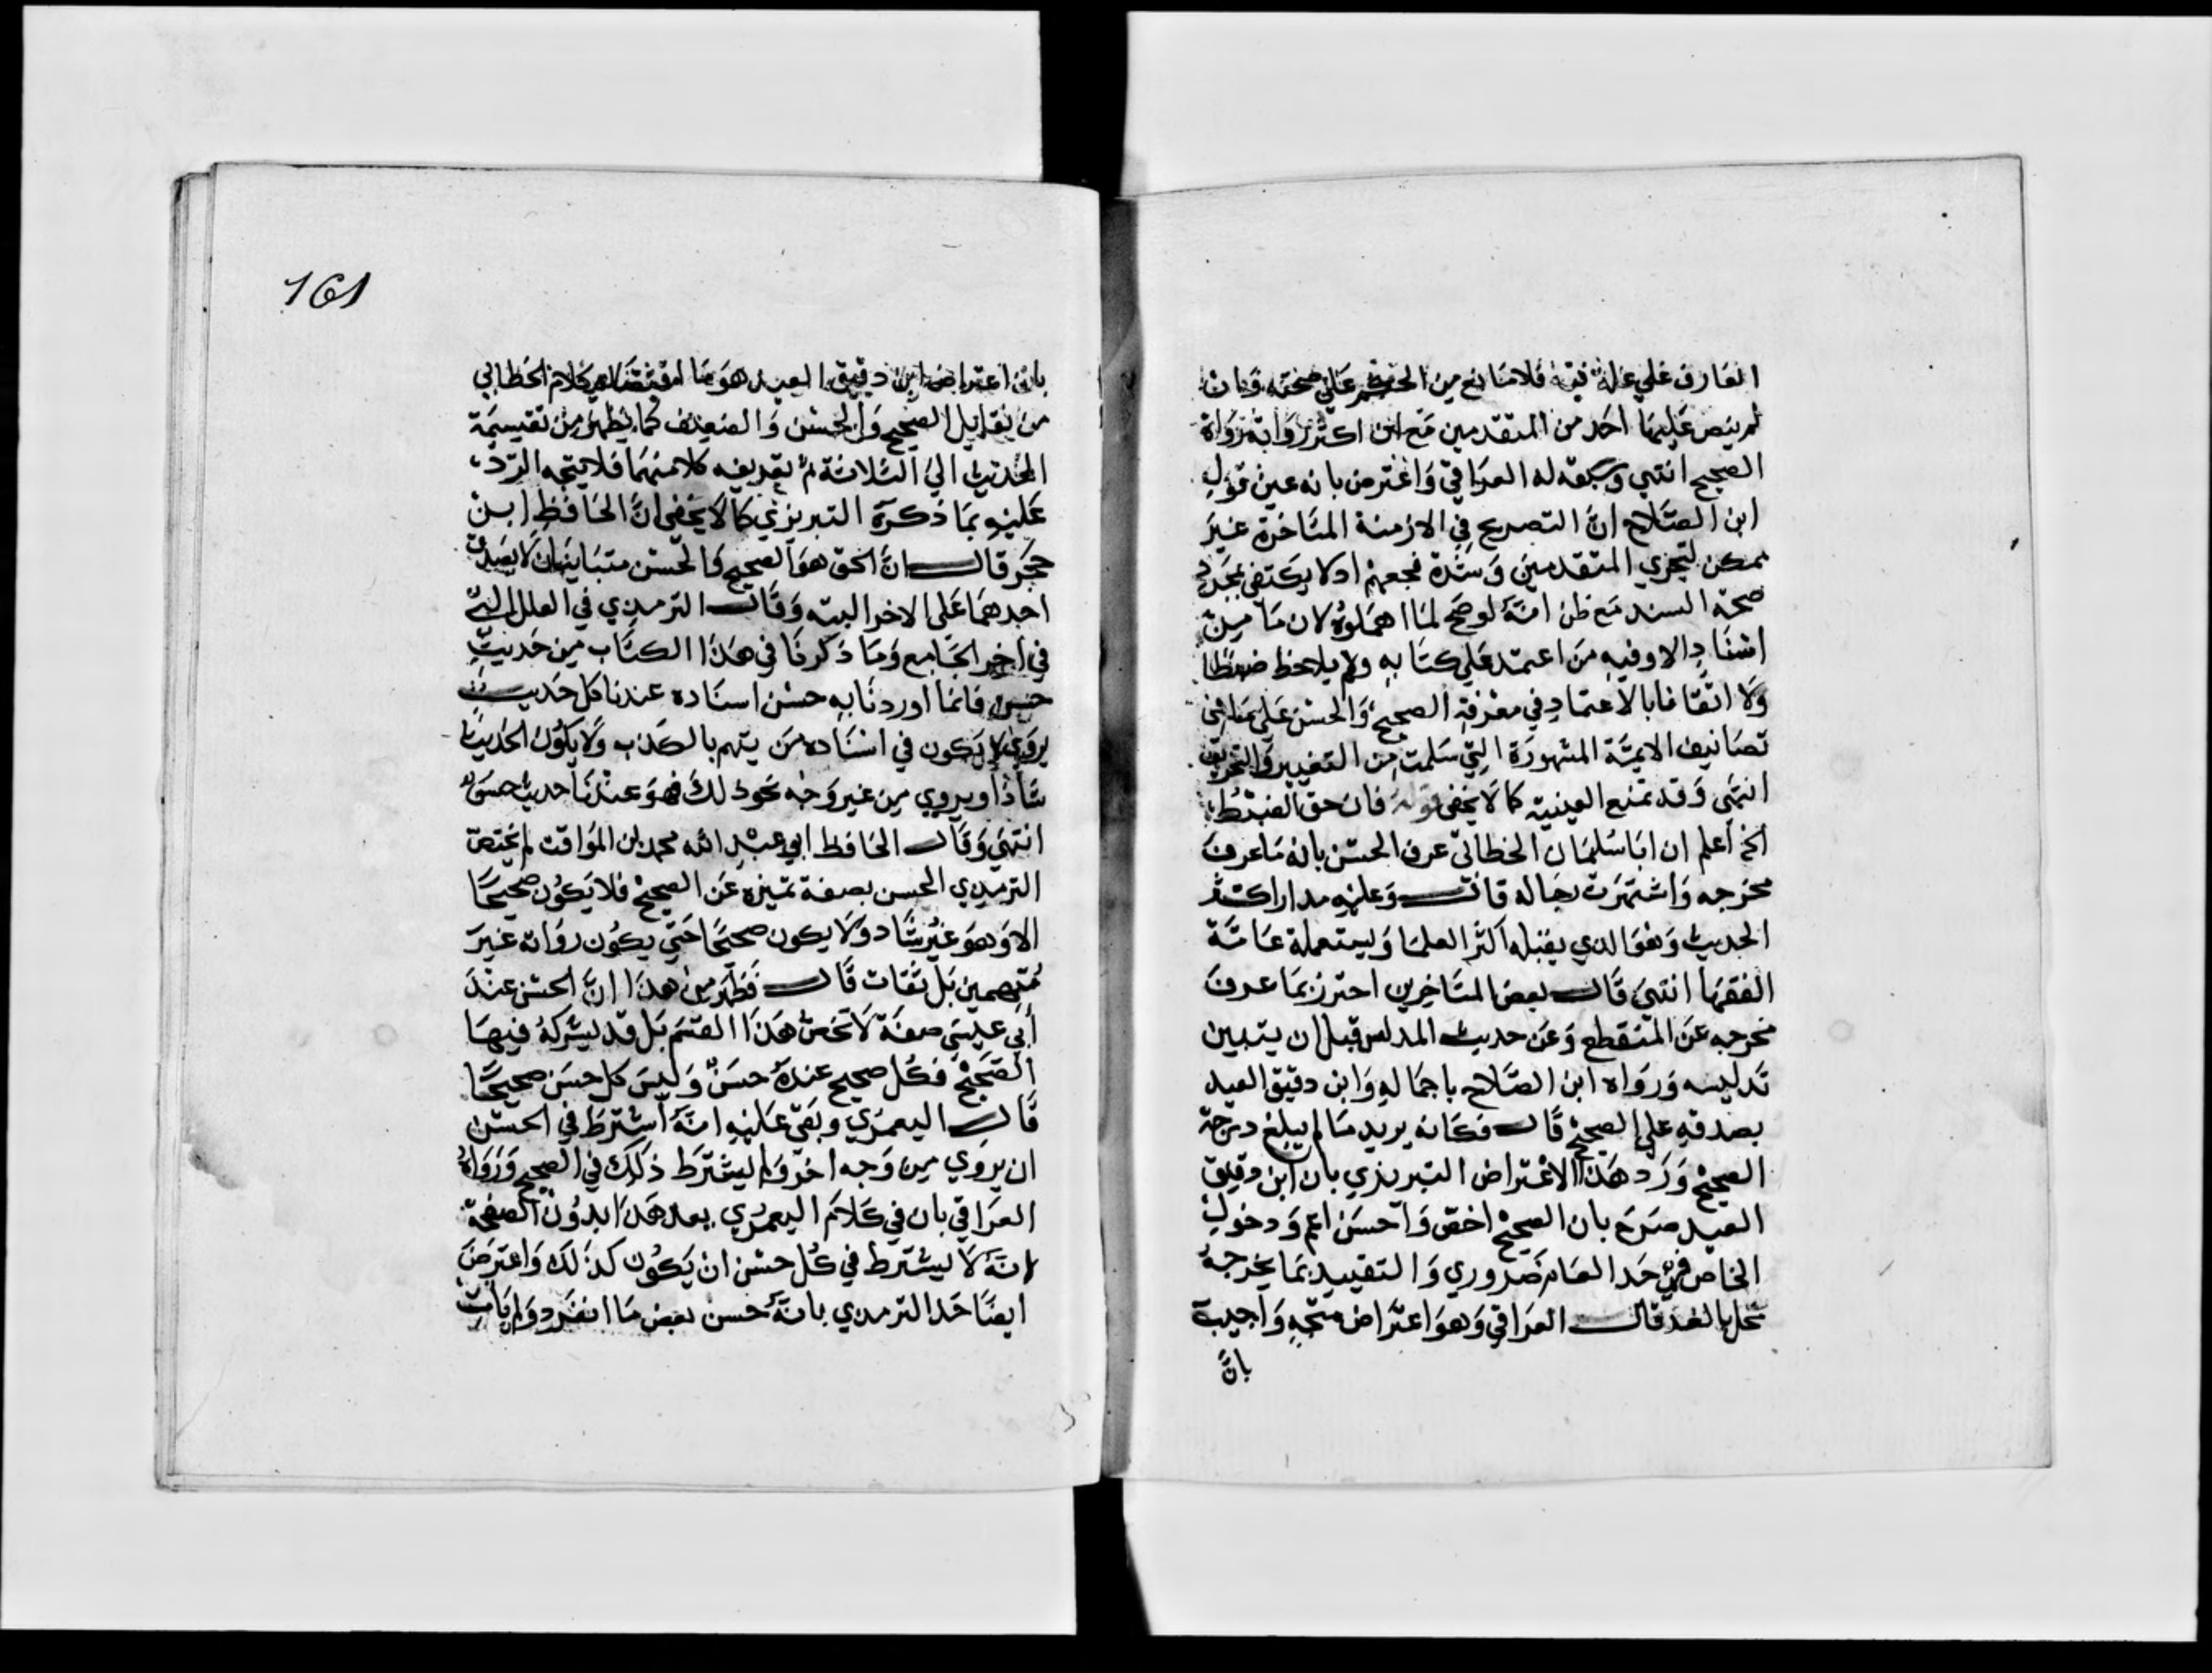 العارف علي علة فيه فلا مانع من الحكم علي صحته وان
لم ينص عليها احد من المتقدمين مع ان اكثر رواته رواة
الصحيح انتهي وسبقه له العراقي واعترض بانه عين قول
ابن الصلاح ان التصريح في الازمنة المتاخرة غير
ممكن لتحري المتقدمين وشدة فحصهم اد لا يكتفي بمجرد
صحة السند مع ظن انه لو صح لما اهملوه لان ما من
اسناد الا وفيه من اعتمد علي كتابه ولم يلاحظ ضبطا
ولا اتقانا بالاعتماد في معرفة الصحيح والحسن علي ما في
تصانيف الايمة المشهورة التي سلمت من التغيير والتحريف
انتهي وقد تمنع العينية كما لا يخفي قوله فان حق الضبط
الخ اعلم ان ابا سليمان الخطابي عرف الحسن بانه ما عرف
مخرجه واشتهرت رجاله قال وعليه مدار اكثر
الحديث وهو الدي يقبله اكثر العلما ويستعمله عامة
الفقها انتهي قال بعض المتاخرين احترز بما عرف
مخرجه عن المنقطع وعن حديث المدلس قبل ان يتبين
تدليسه ورواه ابن الصلاح باجماله وابن دقيق العيد
بصدقه علي الصحيح قال فكانه يريد ما لم يبلغ درجة
الصحيح ورد هذا الاعتراض التبريزي بان ابن دقيق
العيد صرح بان الصحيح اخص والحسن اعم ودخول
الخاص في حد العام ضروري والتقييد بما يخرجه
مخل بالحد قال العراقي وهو اعتراض متجه واجيب
بان
161
بان اعتراض ابن دقيق العيد هو ما اقتضاه كلام الخطابي
من تقابل الصحيح والحسن والضعيف كما يظهر من تقسيمه
الحديث الي الثلاثة ثم تعريفه كلا منهما فلا يتجه الرد
عليه بما ذكره التبريزي كما لا يخفي ان الحافظ ابن
حجر قال ان الحق هو الصحيح والحسن متباينان لا يصدق
احدهما علي الاخر البته وقال الترمدي في العلل التي
في اخر الجامع وما ذكرنا في هذا الكتاب من حديث
حسن فانما اوردنا به حسن اسناده عندنا كل حديث
يروي لا يكون في اسناده من يتهم بالكذب ولا يكون الحديث
شاذا ويروي من غير وجه نحو ذلك فهو عندنا حديث حسن
انتهي وقال الحافظ ابي عبد الله محمد بن المواقت لم يختص
الترمدي الحسن بصفة تميزه عن الصحيح فلا يكون صحيحا
الا وهو غير شاد ولا يكون صحيحا حتي يكون رواته غير
متهمين بل ثقات قال فظهر من هذا ان الحسن عند
ابي عيسي صفة لا تخص هذا القسم بل قد يشركه فيها
الصحيح فكل صحيح عنده حسن وليس كل حسن صحيحا
قال اليعمري وبقي عليه انه اشترط في الحسن
ان يروي من وجه اخر ولم يشترط ذلك في الصحيح ورواه
العراقي بان في كلام اليعمري بعد هذا بدون الصفحة
انه لا يشترط في كل حسن ان يكون كذلك واعترض
ايضا حد الترمدي بانه حسن بعض ما انفرد ولم يات